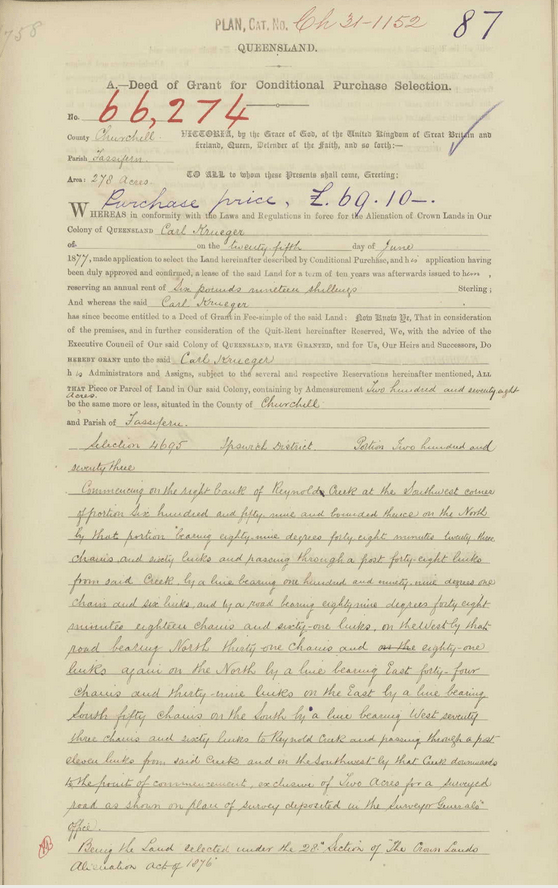 758
PLAN, CAT. No. Ch 31-1152
87
QUEENSLAND.
A.—Deed of Grant for Conditional Purchase Selection.
No. 66,274
County Churchill
VICTORIA, by the Grace of God, of the United Kingdom of Great Britain and
Ireland, Queen, Defender of the Faith, and so forth:—
Parish Fassifern.
Area: 278 Acres.
TO ALL to whom these Presents shall come, Greeting:
Purchase price, £69.10—.
WHEREAS in conformity with the Laws and Regulations in force for the Alienation of Crown Lands in Our
Colony of QUEENSLAND Carl Krueger
of on the twenty fifth day of June
1877, made application to select the Land hereinafter described by Conditional Purchase, and his application having
been duly approved and confirmed, a lease of the said Land for a term of ten years was afterwards issued to him,
reserving an annual rent of Six pounds nineteen shillings Sterling;
And whereas the said Carl Krueger
has since become entitled to a Deed of Grant in Fee-simple of the said Land: Now Know Ye, That in consideration
of the premises, and in further consideration of the Quit-Rent hereinafter Reserved, We, with the advice of the
Executive Council of Our said Colony of QUEENSLAND, HAVE GRANTED, and for Us, Our Heirs and Successors, Do
HEREBY GRANT unto the said Carl Krueger
his Administrators and Assigns, subject to the several and respective Reservations hereinafter mentioned, ALL
THAT Piece or Parcel of Land in Our said Colony, containing by Admeasurement Two hundred and seventy eight
acres.
be the same more or less, situated in the County of Churchill
and Parish of Fassifern.
Selection 4695 Ipswich District Portion Two hundred and
seventy three
Commencing on the right bank of Reynolds Creek at the Southwest corner
of portion six hundred and fifty-nine and bounded thence on the North
by that portion bearing eighty-nine degrees forty-eight minutes twenty three
chains and sixty links and passing through a post forty-eight links
from said Creek, by a line bearing one hundred and ninety-nine degrees one
chain and six links, and by a road bearing eighty-nine degrees forty-eight
minutes eighteen chains and sixty-one links, on the West by that
road bearing North thirty-one chains and eighty-one
links again on the North by a line bearing East forty-four
chains and thirty-nine links on the East by a line bearing
South fifty chains on the South by a line bearing West seventy
three chains and sixty links to Reynold Creek and passing through a post
eleven links from said Creek and on the Southwest by that Creek downwards
to the point of commencement, exclusive of Two Acres for a surveyed
road as shown on plan of survey deposited in the Surveyor Generals'
office.
Being the Land selected under the 28th Section of "The Crown Lands
Alienation Act of 1876"